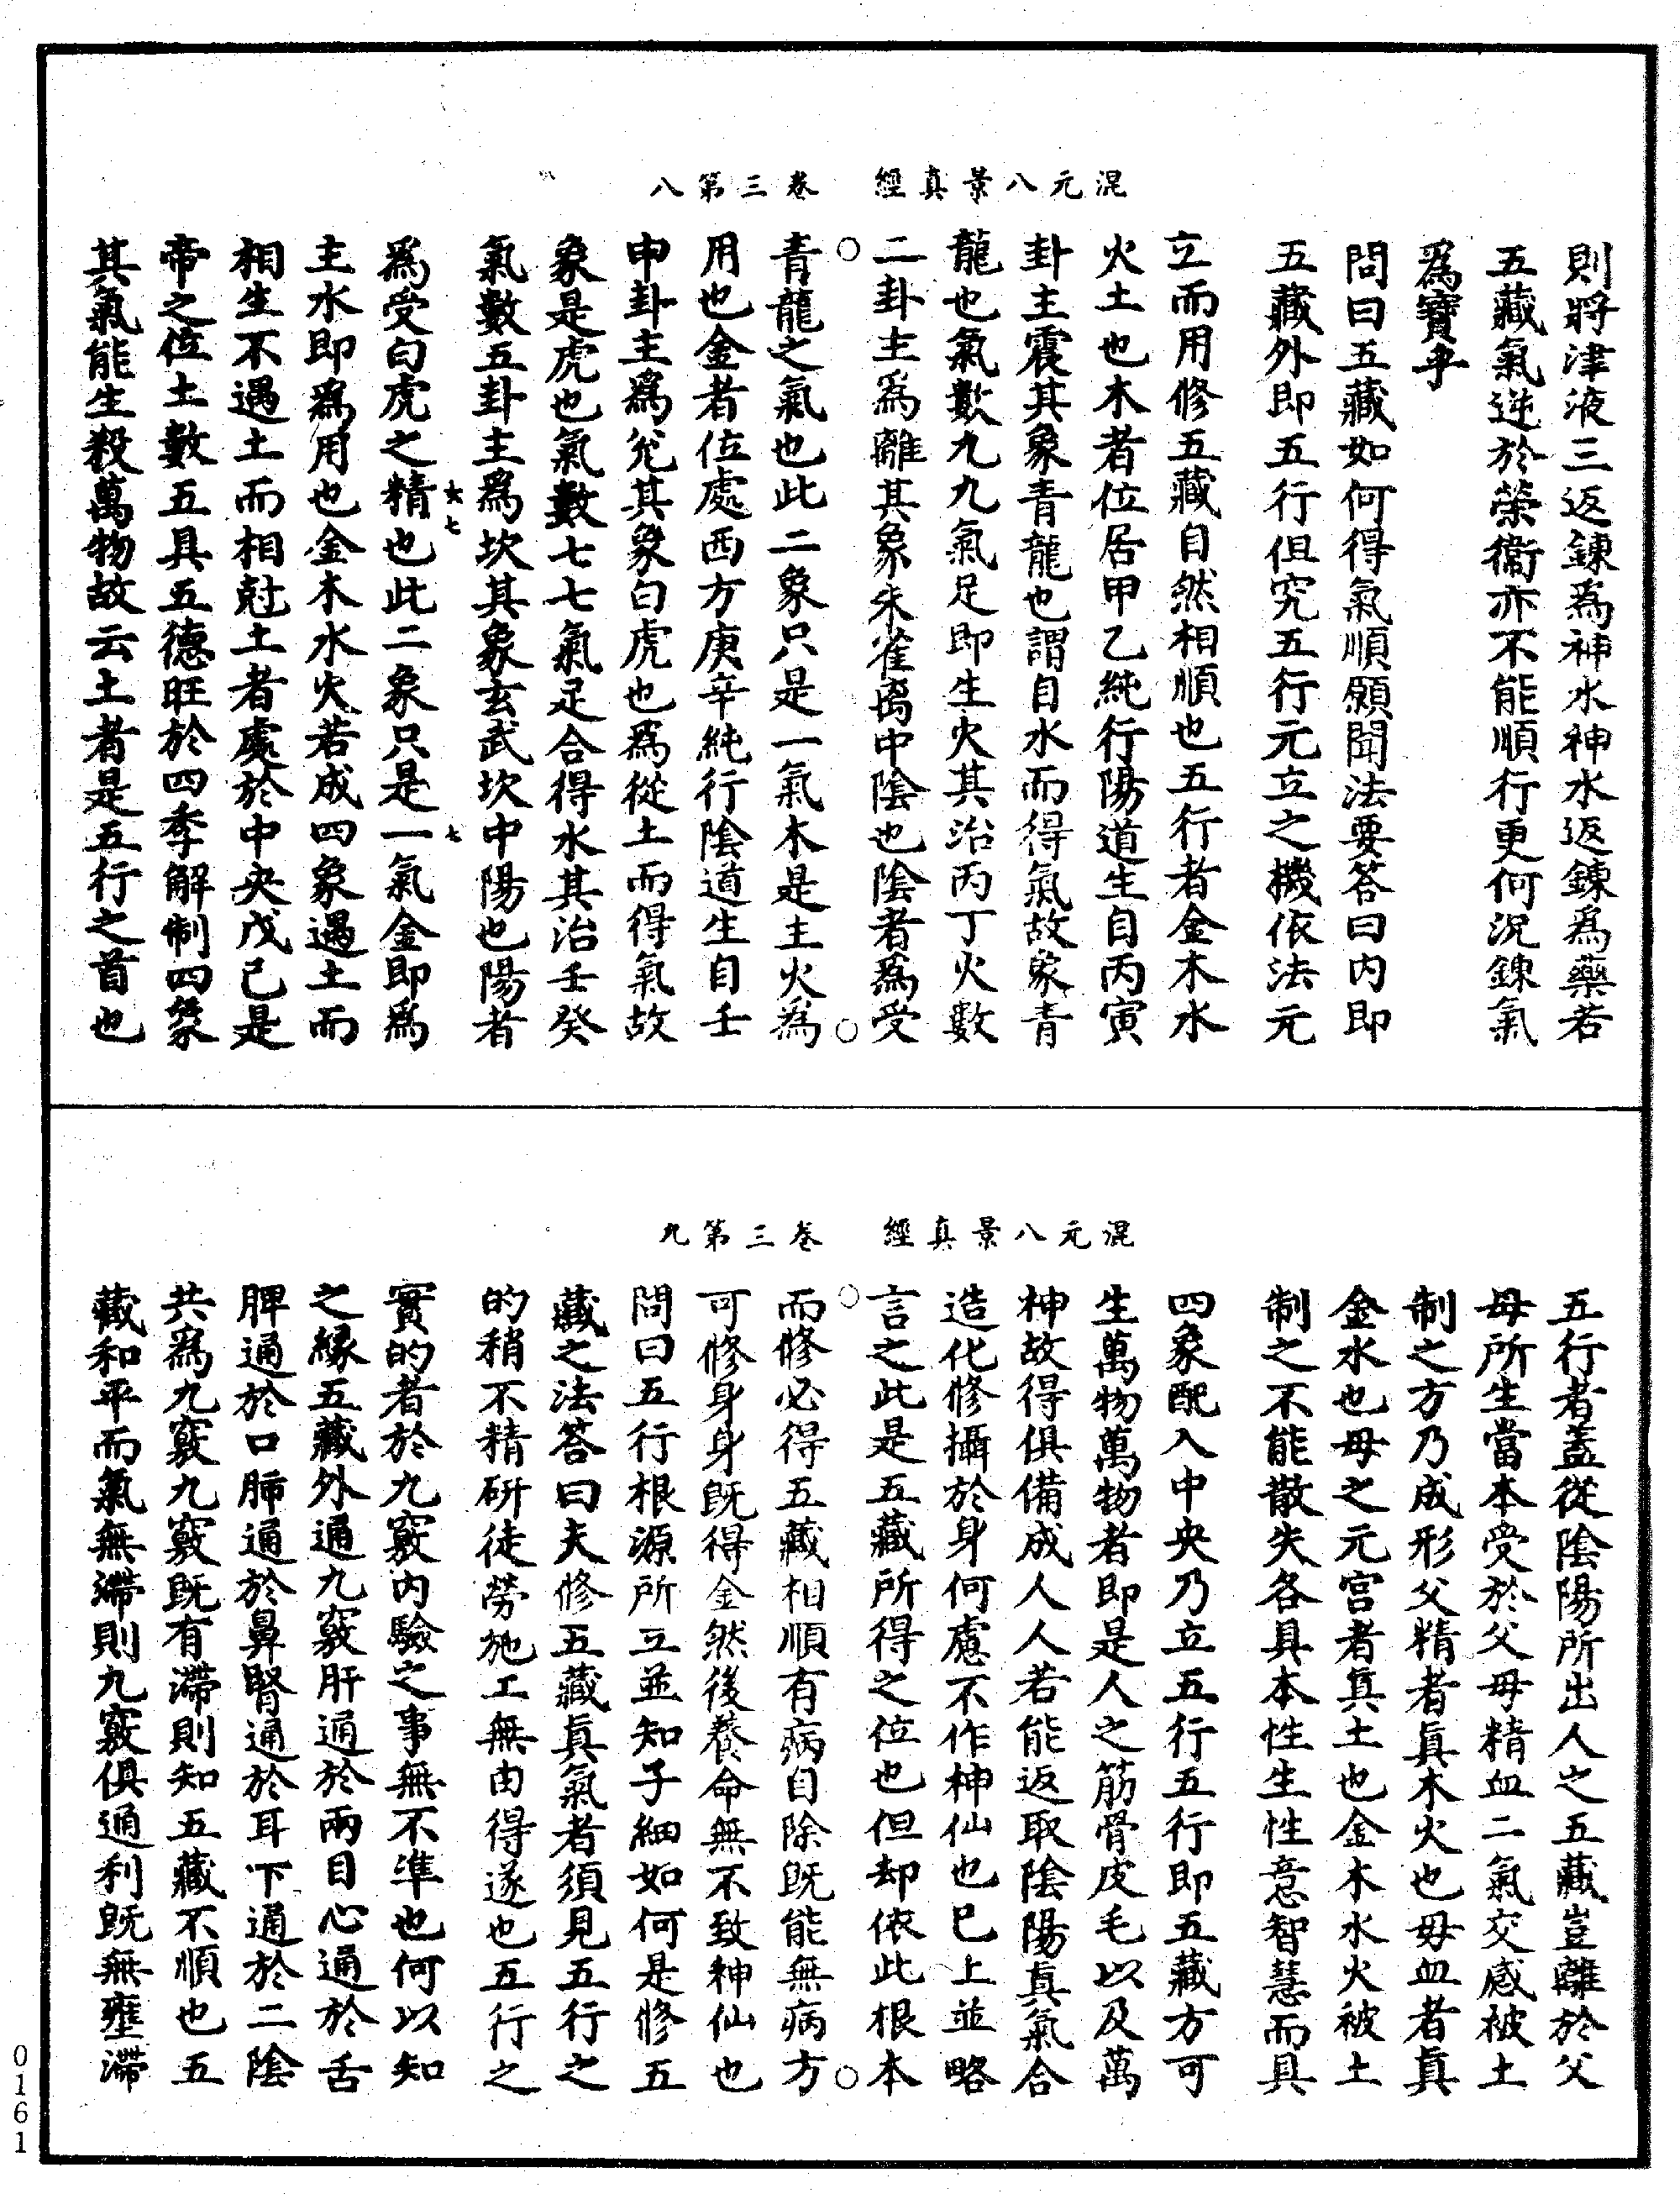 混元八景真經　卷三第八
則將津液三返鍊爲神水神水返鍊爲藥若
五藏氣逆於榮衞亦不能順行更何況鍊氣
爲寶乎
問曰五藏如何得氣順願聞法要答曰內即
五藏外即五行但究五行元立之機依法元
立而用修五藏自然相順也五行者金木水
火土也木者位居甲乙純行陽道生自丙寅
卦主震其象青龍也謂自水而得氣故象青
龍也氣數九九氣足即生火其治丙丁火數
二卦主爲離其象朱雀离中陰也陰者爲受
青龍之氣也此二象只是一氣木是主火爲
用也金者位處西方庚辛純行陰道生自壬
申卦主爲兊其象白虎也爲從土而得氣故
象是虎也氣數七七氣足合得水其治壬癸
氣數五卦主爲坎其象玄武坎中陽也陽者
爲受白虎之精也此二象只是一氣金即爲
主水即爲用也金木水火若成四象遇土而
相生不遇土而相尅土者處於中央戊己是
帝之位土數五具五德旺於四季解制四象
其氣能生殺萬物故云土者是五行之首也
六七　七
混元八景真經　卷三第九
五行者蓋從陰陽所出人之五藏豈離於父
母所生當本受於父母精血二氣交感被土
制之方乃成形父精者真木火也母血者真
金水也母之元宫者真土也金木水火被土
制之不能散失各具本性生性意智慧而具
四象配入中央乃立五行五行即五藏方可
生萬物萬物者即是人之筋骨皮毛以及萬
神故得俱備成人人若能返取陰陽真氣合
造化修攝於身何慮不作神仙也已上並略
言之此是五藏所得之位也但却依此根本
而修必得五藏相順有病自除旣能無病方
可修身身旣得金然後養命無不致神仙也
問曰五行根源所立並知子細如何是修五
藏之法答曰夫修五藏真氣者須見五行之
的稍不精研徒勞施工無由得遂也五行之
實的者於九竅內驗之事無不準也何以知
之緣五藏外通九竅肝通於兩目心通於舌
脾通於口肺通於鼻腎通於耳下通於二陰
共爲九竅九竅旣有滯則知五藏不順也五
藏和平而氣無滯則九竅俱通利旣無壅滯
0161